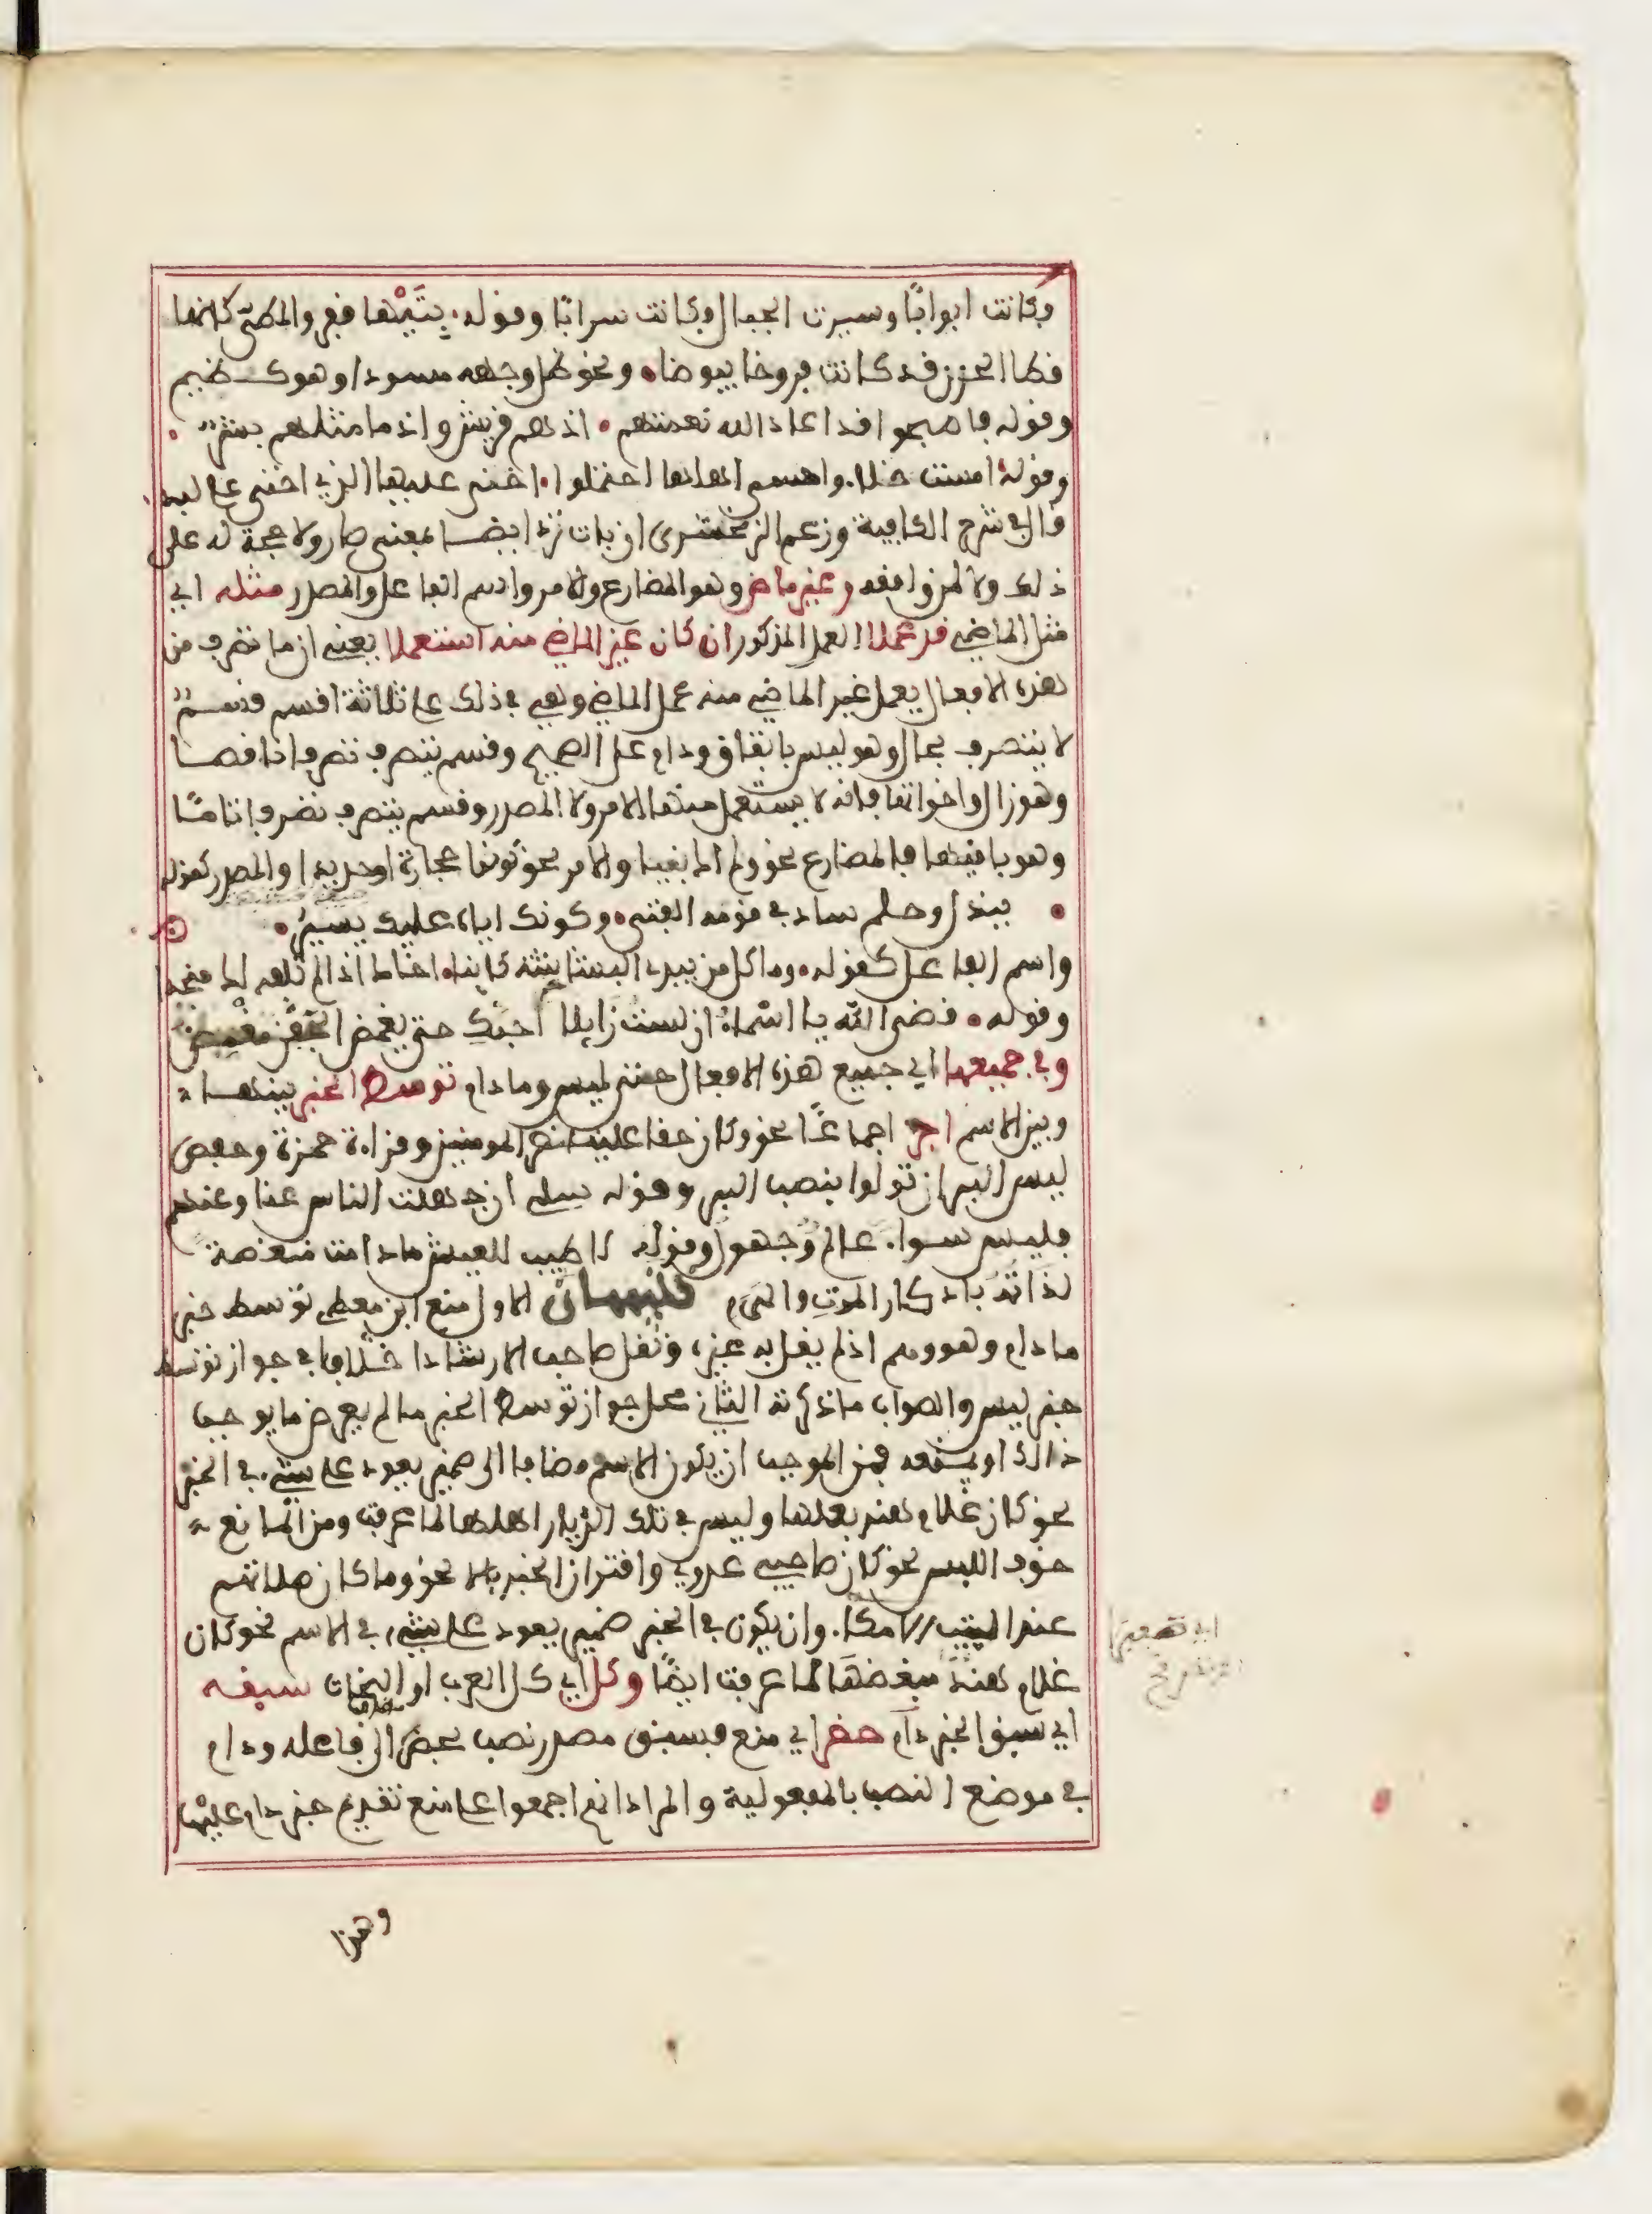 فكانت ابوابا وسيرت الجبال فكانت سرابا وقوله بتيهاء قفر والمطي كانها
قطا الحزن قد كانت فروخا بيوضها ونحو ظل وجهه مسودا وهو كظيم
وقوله فاصبحوا قد اعاد الله نعمتهم اذ هم قريش واذ ما مثلهم بشر
وقوله امست خلاء وامسى اهلها احتملوا اخنى عليها الذي اخنى على لبد
قال في شرح الكافية وزعم الزمخشري ان بات ترد ايضا بمعنى صار ولا حجة له على
ذلك ولا لمن وافقه وغير ماض وهو المضارع والامر واسم الفاعل والمصدر مثله اي
مثل الماضي قد عملا العمل المذكور ان كان غير الماض منه استعملا يعني ان ما تصرف من
هذه الافعال يعمل غير الماضي منه عمل الماضي وهي في ذلك على ثلاثة اقسم قسم
لا يتصرف بحال وهو ليس باتفاق ودام على الصحيح وقسم يتصرف تصرفا ناقصا
وهو زال واخواتها فانه لا يستعمل منها الامر ولا المصدر وقسم يتصرف تصرفا تاما
وهو باقيها فالمضارع نحو ولم اك بغيا والامر نحو كونوا حجارة او حديدا والمصدر كقوله
ببذل وحلم ساد في قومه الفتى وكونك اياه عليك يسير
واسم الفاعل كقوله وما كل من يبدي البشاشة كائنا اخاك اذا لم تلفه لك منجدا
وقوله قضى الله يا اسماء ان لست زايلا احبك حتى يغمض الجفن مغمض
وفي جميعها اي جميع هذه الافعال حتى ليس وما دام توسط الخبر بينها
وبين الاسم اجز اجماعا نحو وكان حقا علينا نصر المومنين وقراءة حمزة وحفص
ليس البر ان تولوا بنصب البر وقوله سلي ان جهلت الناس عنا وعنهم
فليس سواء عالم وجهول وقوله لا طيب للعيش ما دامت منغصة
لذاته بادكار الموت والهرم تنبيهان الاول منع ابن معطي توسط خبر
ما دام وهو وهم اذ لم يقل به غيره ونقل صاحب الارشاد خلافا في جواز توسط
خبر ليس والصواب ما ذكرته الثاني محل جواز توسط الخبر ما لم يعرض ما يوجب
ذالك او يمنعه فمن الموجب ان يكون الاسم مضافا الى ضمير يعود على شيء في الخبر
نحو كان غلام هند بعلها وليس في تلك الديار اهلها لما عرفت ومن المانع
خوف اللبس نحو كان صاحبي عدوي واقتران الخبر بالا نحو وما كان صلاتهم
عند البيت الا مكاء وان يكون في الخبر ضمير يعود على شيء في الاسم نحو كان
غلام هند مبغضها لما عرفت ايضا وكل اي كل العرب او النحات سبقه
اي سبق الخبر دام حظر اي منع فسبق مصدر نصب بحظر الى فاعله ودام
في موضع النصب بالمفعولية والمراد انهم اجمعوا على منع تقديم خبر دام عليها
وهذا